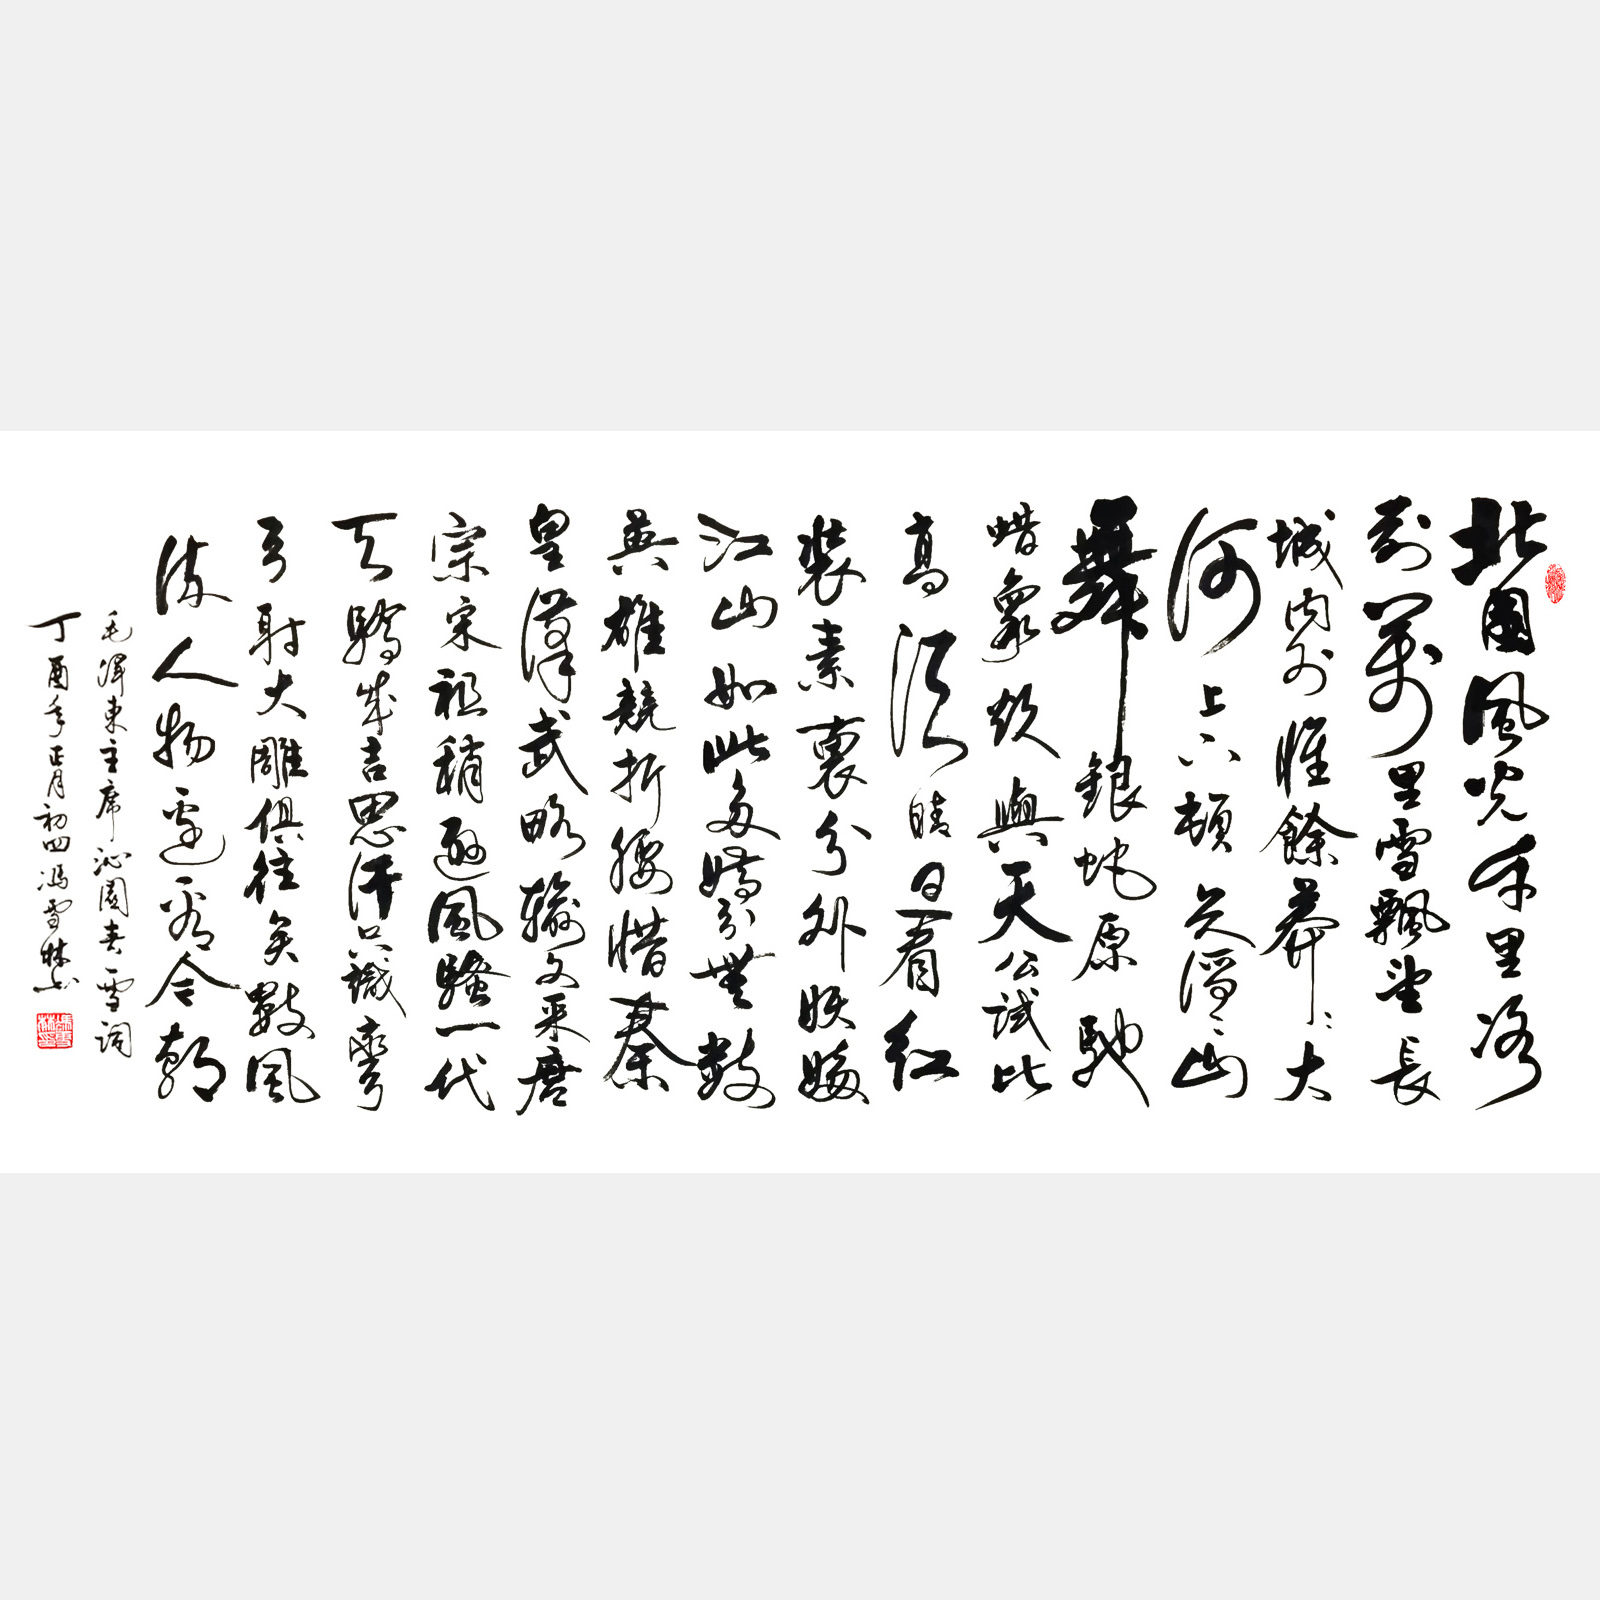 北國風光千里冰
封萬里雪飄望長
城内外惟餘莽々大
河上下頓失滔々山
舞銀蛇原馳
蜡象欲與天公試比
高須晴日看紅
裝素裹分外妖嬈
江山如此多嬌引無數
英雄競折腰惜秦
皇漢武略輸文采唐
宗宋祖稍遜風騷一代
天驕成吉思汗只識彎
弓射大雕俱往矣數風
流人物還看今朝
毛澤東主席沁園春雪詞
丁酉年正月初四馮雪林書